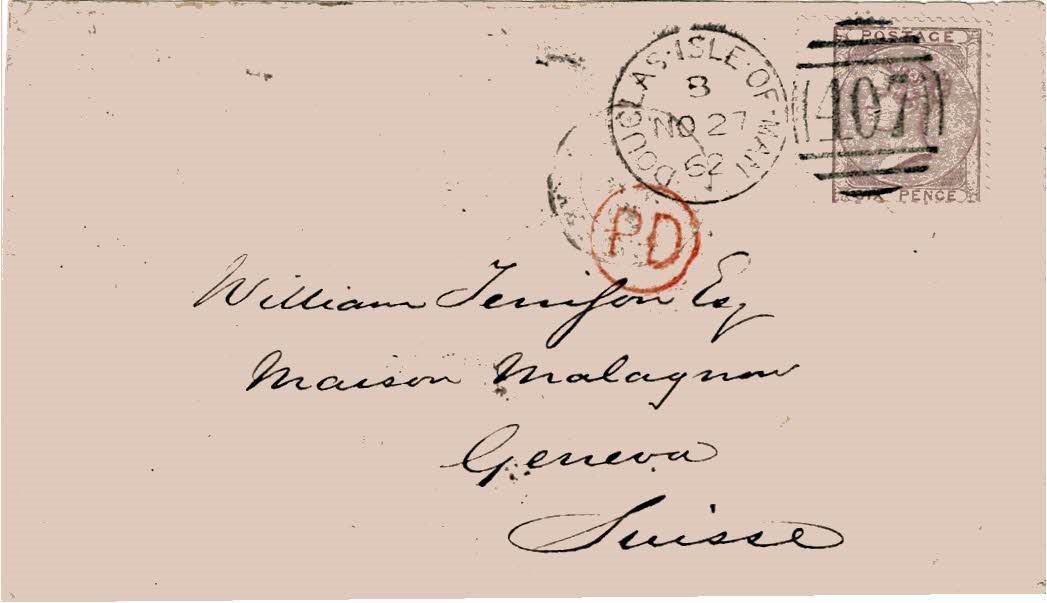 DOUGLAS·ISLE·OF·MAN
8
NO 27
62
POSTAGE
407
SIX PENCE
PD
William Esq
Maison
Geneva
Suisse